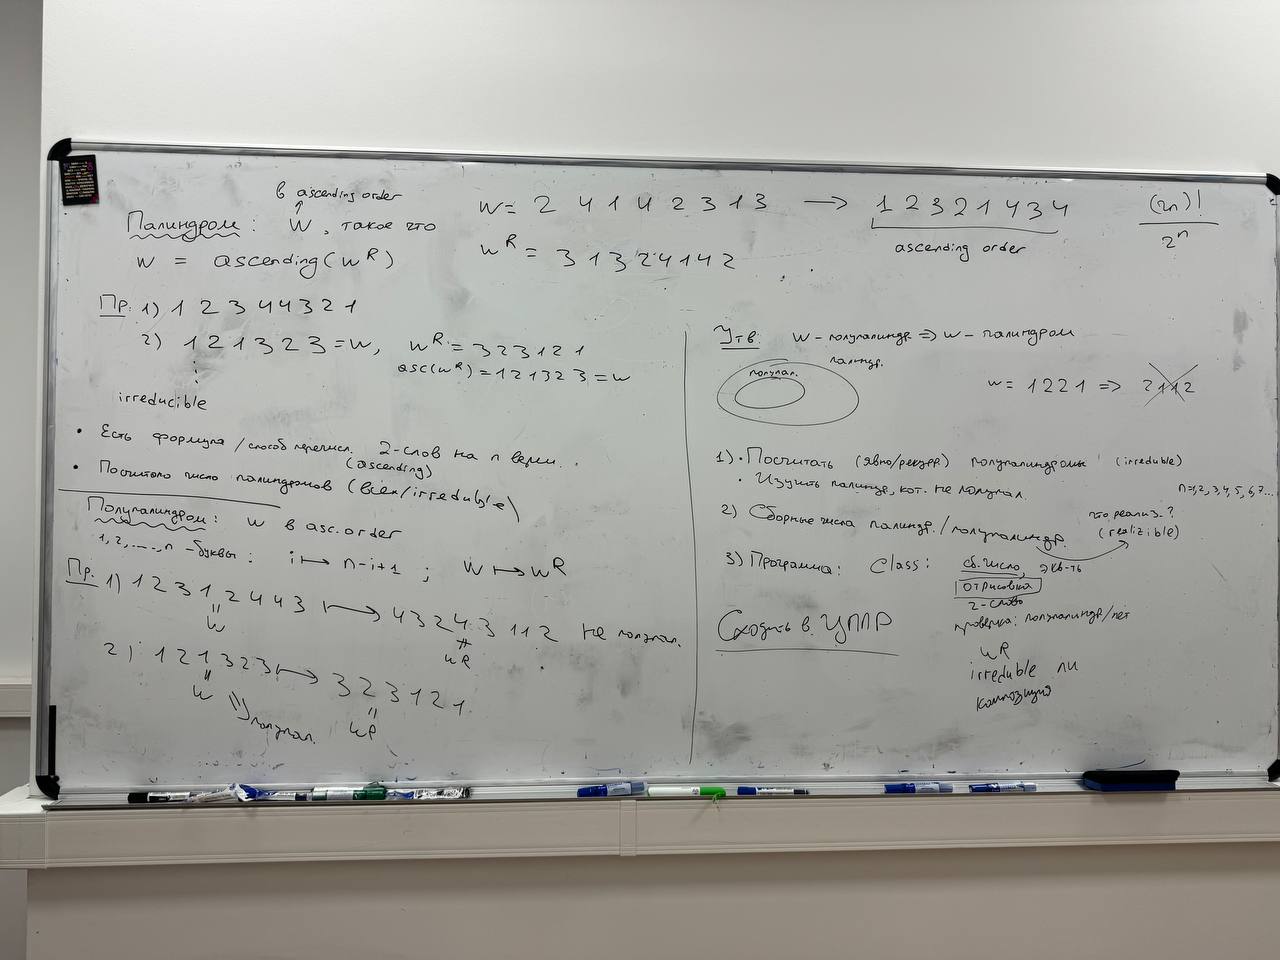 в ascending order
Палиндром: W, такое что
w = ascending(w^R)
w = 2 4 1 4 2 3 1 3 → 1 2 3 2 1 4 3 4
ascending order
w^R = 3 1 3 2 4 1 4 2
(2n)!
2^n
Пр. 1) 1 2 3 4 4 3 2 1
2) 1 2 1 3 2 3 = w, w^R = 3 2 3 1 2 1
asc(w^R) = 1 2 1 3 2 3 = w
irreducible
• Есть формула / способ перечисл. 2-слов на n верш.
(ascending)
• Посчитано число палиндромов (всех/irreducible)
Полупалиндром: w в asc. order
1, 2, ..., n - буквы: i ↦ n-i+1 ; W ↦ w^R
Пр. 1) 1 2 3 1 2 4 4 3 ↦ 4 3 2 4 3 1 1 2 не полупал.
w
≠
w^R
2) 1 2 1 3 2 3 ↦ 3 2 3 1 2 1
w
⇒ полупал.
w^R
Утв. w - полупалиндр ⇒ w - палиндром
палиндр.
полупал.
w = 1221 ⇒ 2112
1) • Посчитать (явно/рекурр) полупалиндромы (irreduble)
• Изучить палиндр, кот. не полупал.
n=1,2,3,4,5,6,7...
2) Сборные числа палиндр./полупалиндр.
что реализ-?
(realizible)
3) Программа: Class: сб. число, экв-ть
отрисовка
2-слово
проверка: полупалиндр/нет
w^R
irreduble ли
композиция
Сходить в ЦППР